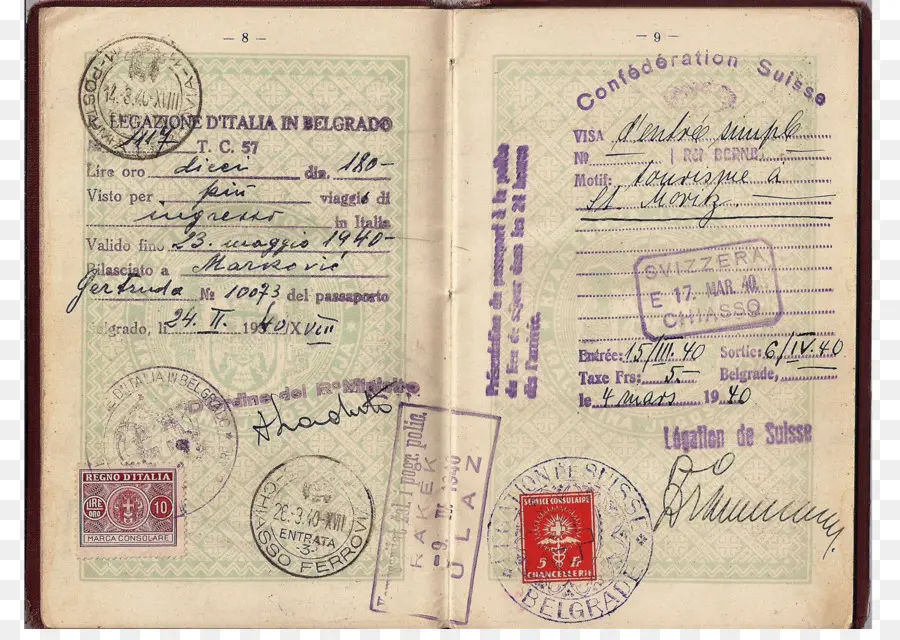 - 8 -
14.·3.40·XVIII
LEGAZIONE D'ITALIA IN BELGRADO
1117 T. C. 57
Lire oro dieci din. 180-
Visto per più viaggi di
ingresso in Italia
Valido fino 23. maggio 1940-
Rilasciato a Marković
Gertruda № 10073 del passaporto
Belgrado, li 24. II. 1940/XVIII
D'ITALIA IN BELGRADO
d'ordine del R° Ministro
REGNO D'ITALIA
LIRE ORO 10
MARCA CONSOLARE
CHIASSO FERROVIA
26·3.40-XVIII
ENTRATA
-3-
pogr. polic.
RAKEK
-9. IV 1940
ULAZ
- 9 -
Confédération Suisse
VISA d'entrée simple
№ BERNE
Motif: tourisme à
St. Moritz.
Présentation du passeport à la police
du lieu de séjour dans les 24 heures
de l'arrivée.
SVIZZERA
E 17. MAR. 40.
CHIASSO
Entrée: 15/III. 40 Sortie: 6/IV. 40
Taxe Frs: 5.- Belgrade,
le 4 mars 1940
Légation de Suisse
LEGATION DE SUISSE
SERVICE CONSULAIRE
5 Fr
CHANCELLERIE
BELGRADE